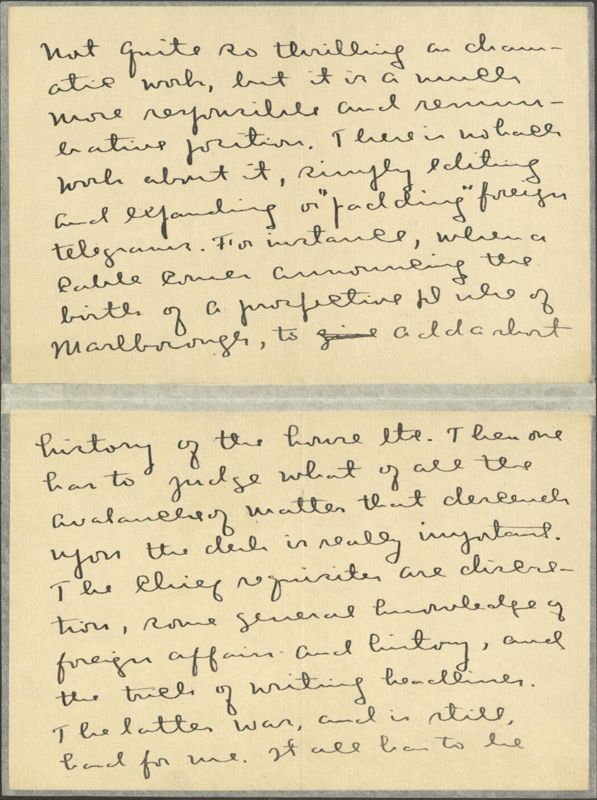 not quite so thrilling as dram-
atic work, but it is a much
more responsible and remun-
erative position. There is no hack
work about it, simply editing
and expanding or "padding" foreign
telegrams. For instance, when a
cable comes announcing the
birth of a prospective Duke of
Marlborough, to give add a short
history of the house etc. Then one
has to judge what of all the
avalanche of matter that descends
upon the desk is really important.
The chief requisites are discre-
tion, some general knowledge of
foreign affairs and history, and
the trick of writing headlines.
The latter was, and is still,
hard for me. It all has to be